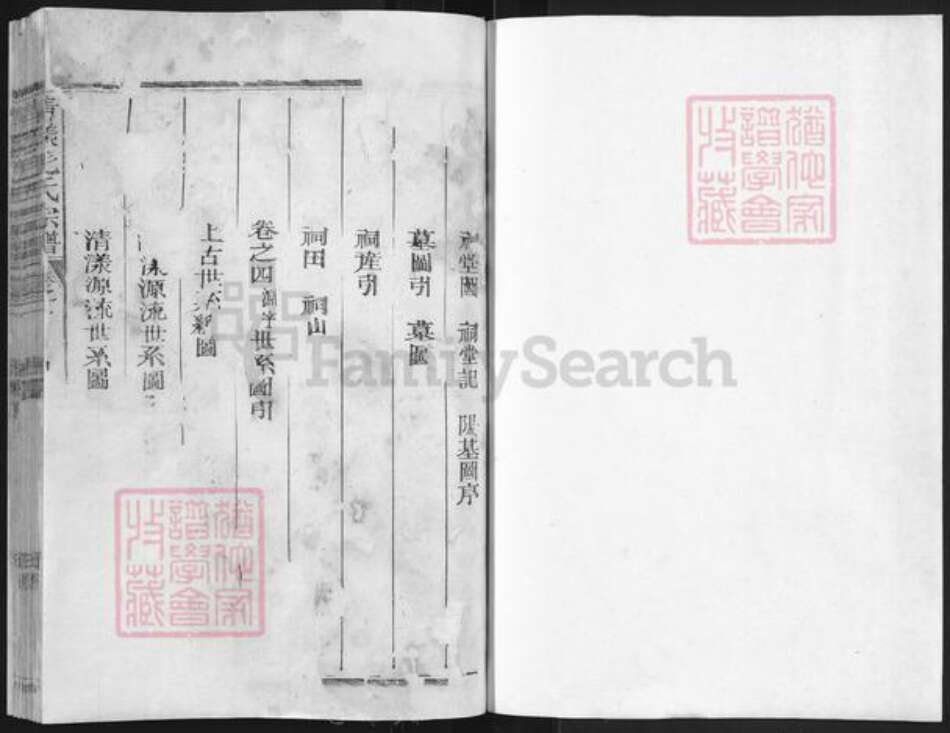 祠堂圖 祠堂記 陽基圖序
墓圖引 墓圖
祠産引
祠田 祠山
卷之四 源流世系圖引
上古世系圖
源流世系圖
清漾源流世系圖
清漾毛氏宗譜
猶他家譜學會收藏
猶他家譜學會收藏
FamilySearch